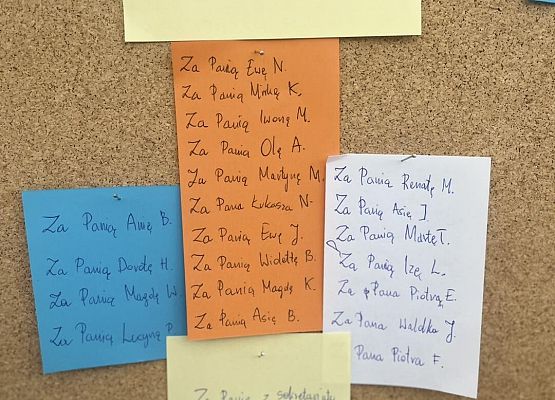 Za Panią Anię B.
Za Panią Dorotę H.
Za Panią Magdę W.
Za Panią Lucynę P.
Za Panią Ewę N.
Za Panią Mirkę K.
Za Panią Iwonę M.
Za Panią Olę A.
Za Panią Martynę M.
Za Pana Łukasza N.
Za Panią Ewę J.
Za Panią Wiolettę B.
Za Panią Magdę K.
Za Panią Asię B.
Za Panią Renatę M.
Za Panią Asię J
Za Panią Martę T.
Za Panią Izę L.
Za Pana Piotra E.
Za Pana Waldka J.
Pana Piotra F.
Za Panie z sekretariatu